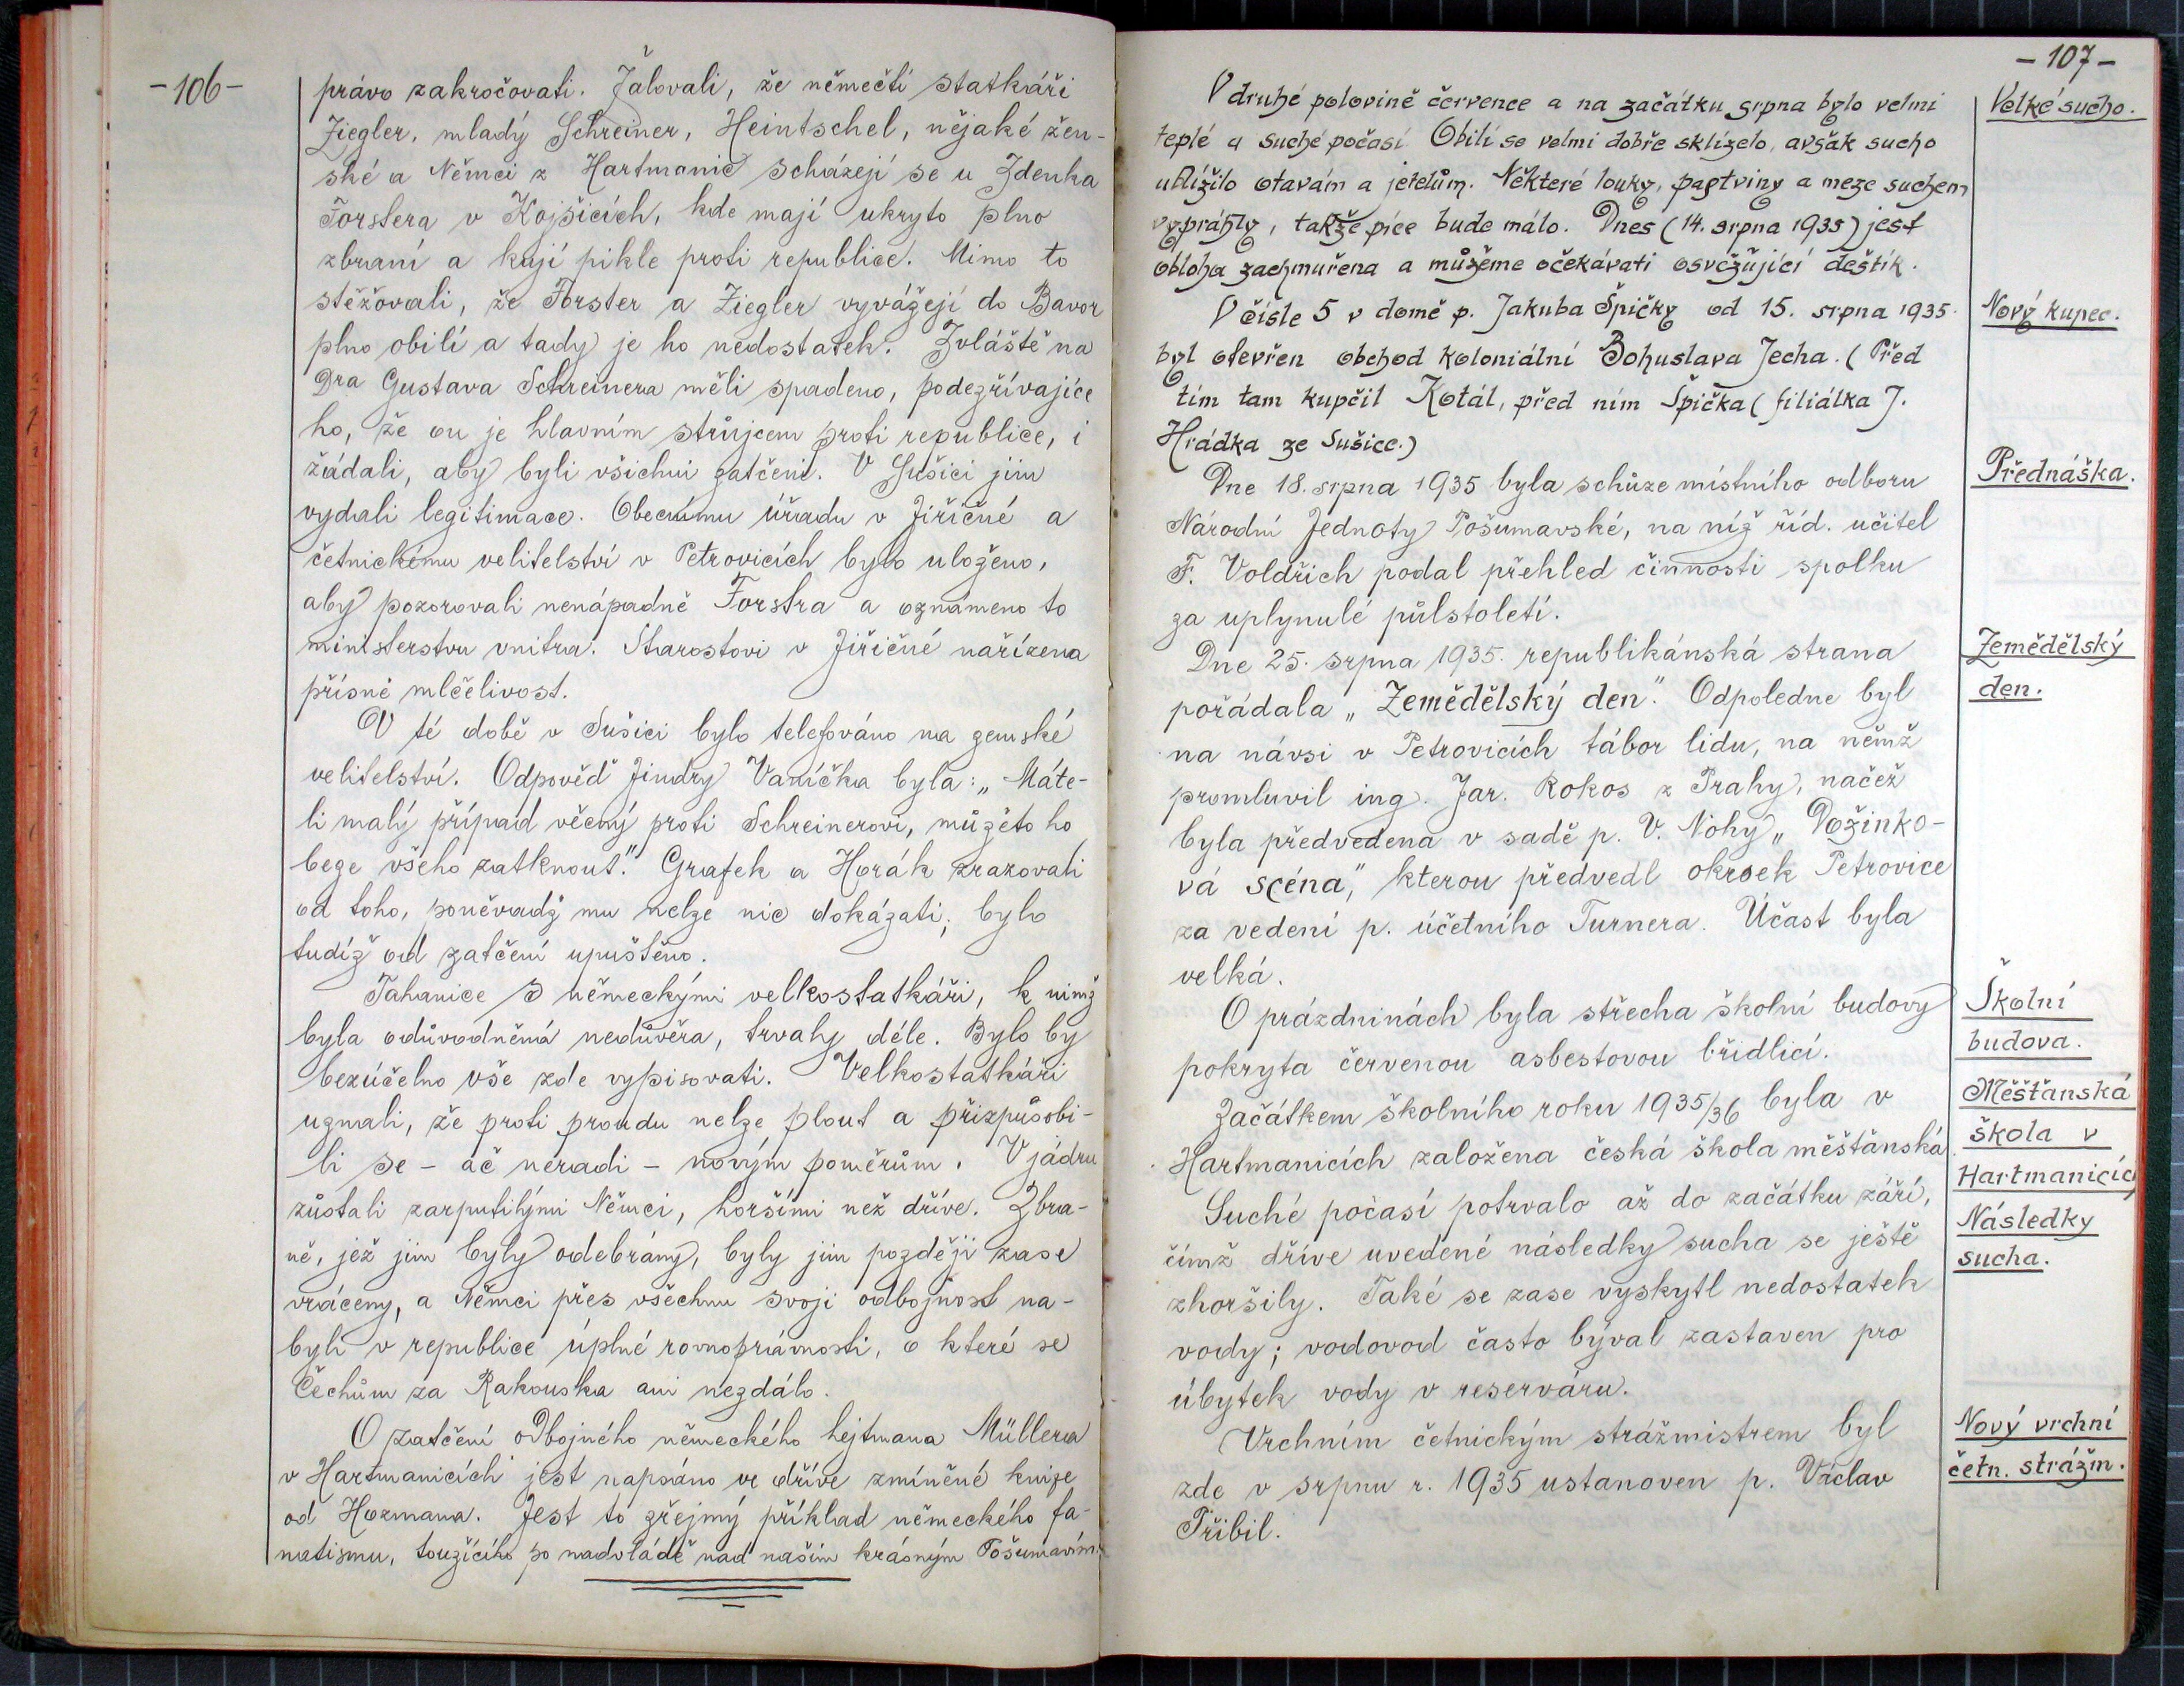 -106-
právo zakročovati. Žalovali, že němečtí statkáři
Ziegler, mladý Schreiner, Heintschel, nějaké žen-
ské a Němci z Hartmanic scházejí se u Zdenka
Forstera v Kojšicích, kde mají ukryto plno
zbraní a kují pikle proti republice. Mimo to
stěžovali, že Forster a Ziegler vyvážejí do Bavor
plno obilí a tady je ho nedostatek. Zvláště na
Dra Gustava Schreinera měli spadeno, podezřívajíce
ho, že on je hlavním strůjcem proti republice, i
žádali, aby byli všichni zatčeni. V Sušici jim
vydali legitimace. Obecnímu úřadu v Jiřičné a
četnickému velitelství v Petrovicích bylo uloženo,
aby pozorovali nenápadně Forstra a oznámeno to
ministerstvu vnitra. Starostovi v Jiřičné nařízena
přísná mlčelivost.
V té době v Sušici bylo telefováno na zemské
velitelství. Odpověď Jindry Vaníčka byla: „Máte-
li malý případ věcný proti Schreinerovi, můžete ho
beze všeho zatknout." Grafek a Horák zrazovali
od toho, poněvadž mu nelze nic dokázati; bylo
tudíž od zatčení upuštěno.
Tahanice s německými velkostatkáři, k nimž
byla odůvodněná nedůvěra, trvaly déle. Bylo by
bezúčelno vše zde vypisovati. Velkostatkáři
uznali, že proti proudu nelze plout a přizpůsobi-
li se - ač neradi - novým poměrům. V jádru
zůstali zarputilými Němci, horšími než dříve. Zbra-
ně, jež jim byly odebrány, byly jim později zase
vráceny, a Němci přes všechnu svoji odbojnost na-
byli v republice úplné rovnoprávnosti, o které se
Čechům za Rakouska ani nezdálo.
O zatčení odbojného německého hejtmana Müllera
v Hartmanicích jest napsáno ve dříve zmíněné knize
od Hozmana. Jest to zřejmý příklad německého fa-
natismu, toužícího po nadvládě nad naším krásným Pošumavím.
-107-
V druhé polovině července a na začátku srpna bylo velmi
teplé a suché počasí. Obilí se velmi dobře sklízelo, avšak sucho
ublížilo otavám a jetelům. Některé louky, pastviny a meze suchem
vyprahly, takže píce bude málo. Dnes (14. srpna 1935) jest
obloha zachmuřena a můžeme očekávati osvěžující deštík.
Velké sucho.
V čísle 5 v domě p. Jakuba Špičky od 15. srpna 1935
byl otevřen obchod koloniální Bohuslava Jecha. (Před
tím tam kupčil Kotál, před ním Špička (filiálka J.
Hrádka ze Sušice.)
Nový kupec.
Dne 18. srpna 1935 byla schůze místního odboru
Národní Jednoty Pošumavské, na níž říd. učitel
F. Voldřich podal přehled činnosti spolku
za uplynulé půlstoletí.
Přednáška.
Dne 25. srpna 1935. republikánská strana
pořádala „Zemědělský den." Odpoledne byl
na návsi v Petrovicích tábor lidu, na němž
promluvil ing. Jar. Rokos z Prahy, načež
byla předvedena v sadě p. V. Nohy „Dožinko-
vá scéna," kterou předvedl okrsek Petrovice
za vedení p. účetního Turnera. Účast byla
velká.
Zemědělský
den.
O prázdninách byla střecha školní budovy
pokryta červenou asbestovou břidlicí.
Školní
budova.
Začátkem školního roku 1935/36 byla v
Hartmanicích založena česká škola měšťanská
Měšťanská
škola v
Hartmanicíc
Suché počasí potrvalo až do začátku září,
čímž dříve uvedené následky sucha se ještě
zhoršily. Také se zase vyskytl nedostatek
vody; vodovod často býval zastaven pro
úbytek vody v reserváru.
Následky
sucha.
Vrchním četnickým strážmistrem byl
zde v srpnu r. 1935 ustanoven p. Václav
Přibil.
Nový vrchní
četn. strážm.